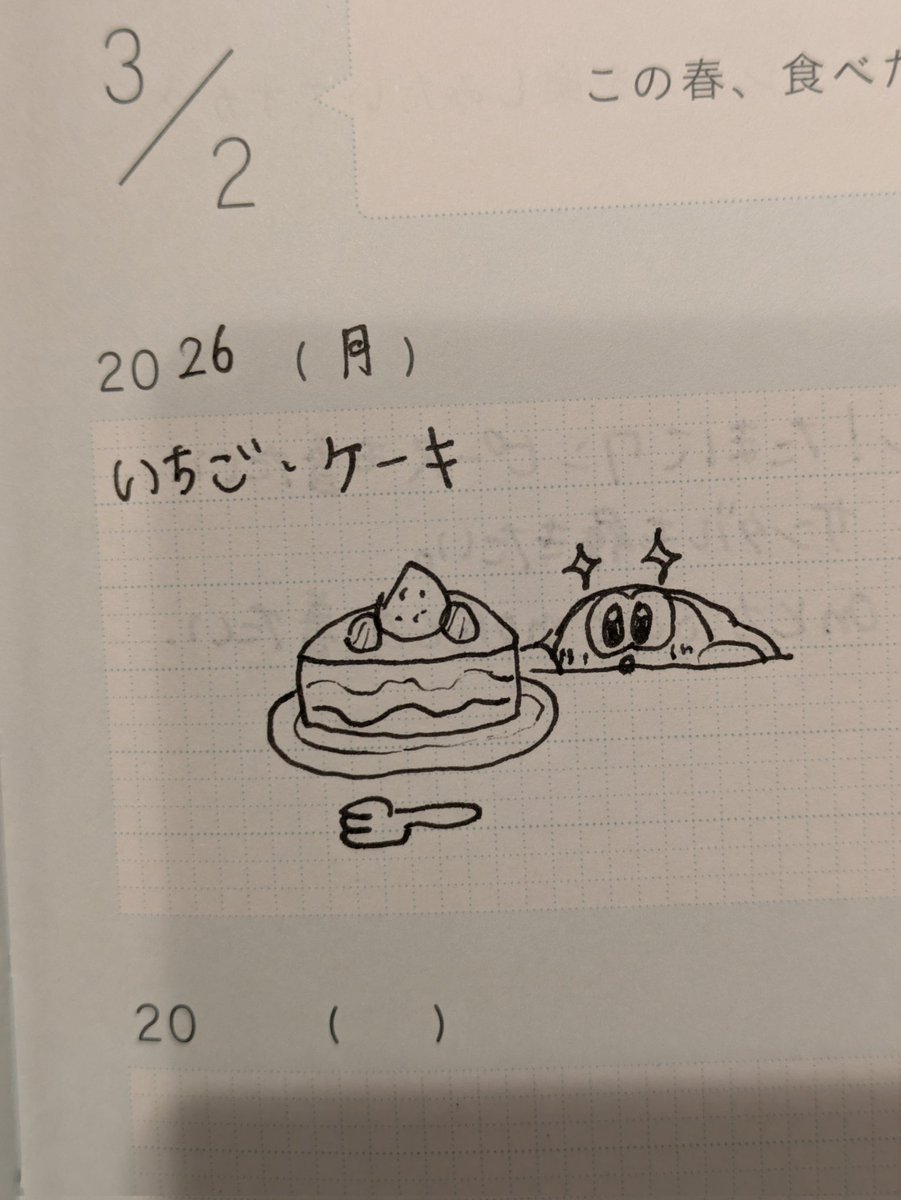 3/2
この春、食べた
2026（月）
いちご、ケーキ
20　（　）